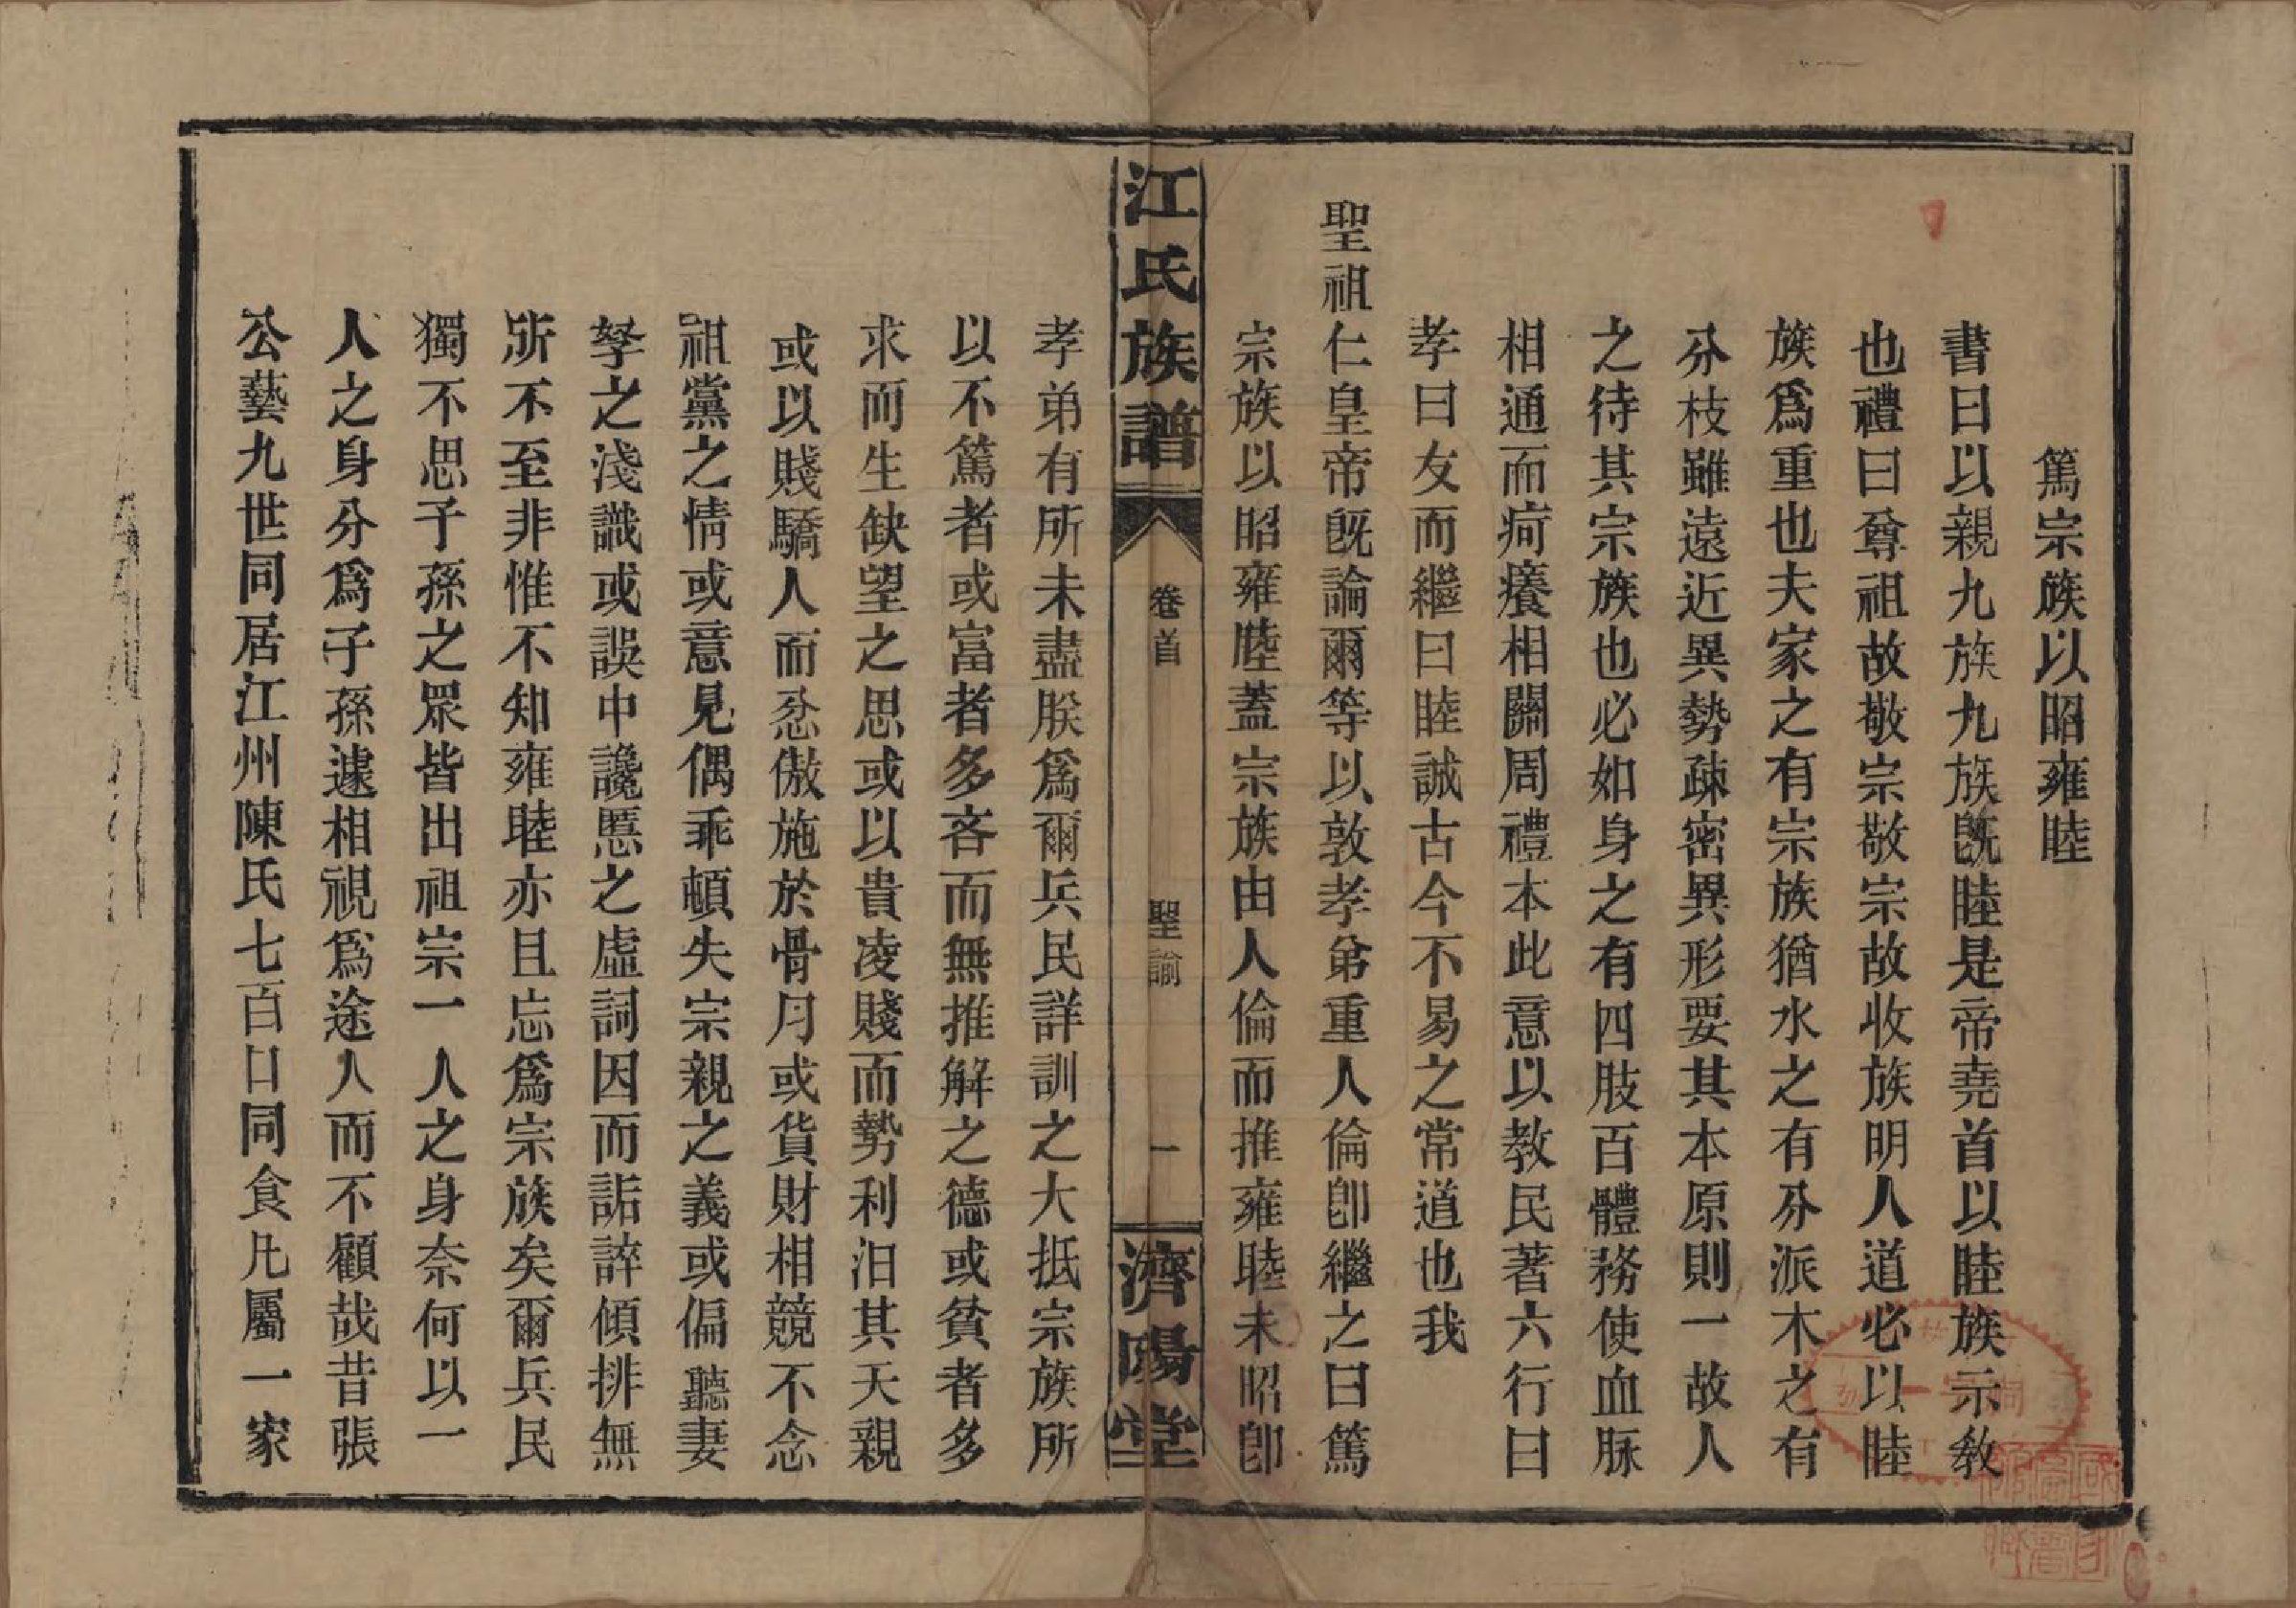 篤宗族以昭雍睦
書曰以親九族九族旣睦是帝堯首以睦族示教
也禮曰尊祖故敬宗敬宗故收族明人道必以睦
族爲重也夫家之有宗族猶水之有分派木之有
分枝雖遠近異勢疎密異形要其本原則一故人
之待其宗族也必如身之有四肢百體務使血脉
相通而疴癢相關周禮本此意以教民著六行曰
孝曰友而繼曰睦誠古今不易之常道也我
聖祖仁皇帝旣諭爾等以敦孝弟重人倫卽繼之曰篤
宗族以昭雍睦蓋宗族由人倫而推雍睦未昭卽
江氏族譜
卷首
聖諭
一
濟陽堂
孝弟有所未盡朕爲爾兵民詳訓之大抵宗族所
以不篤者或富者多吝而無推解之德或貧者多
求而生缺望之思或以貴凌賤而勢利汨其天親
或以賤驕人而忿傲施於骨月或貨財相競不念
祖黨之情或意見偶乖頓失宗親之義或偏聽妻
孥之淺識或誤中讒慝之虛詞因而詬誶傾排無
所不至非惟不知雍睦亦且忘爲宗族矣爾兵民
獨不思子孫之眾皆出祖宗一人之身奈何以一
人之身分爲子孫遽相視爲途人而不顧哉昔張
公藝九世同居江州陳氏七百口同食凡屬一家